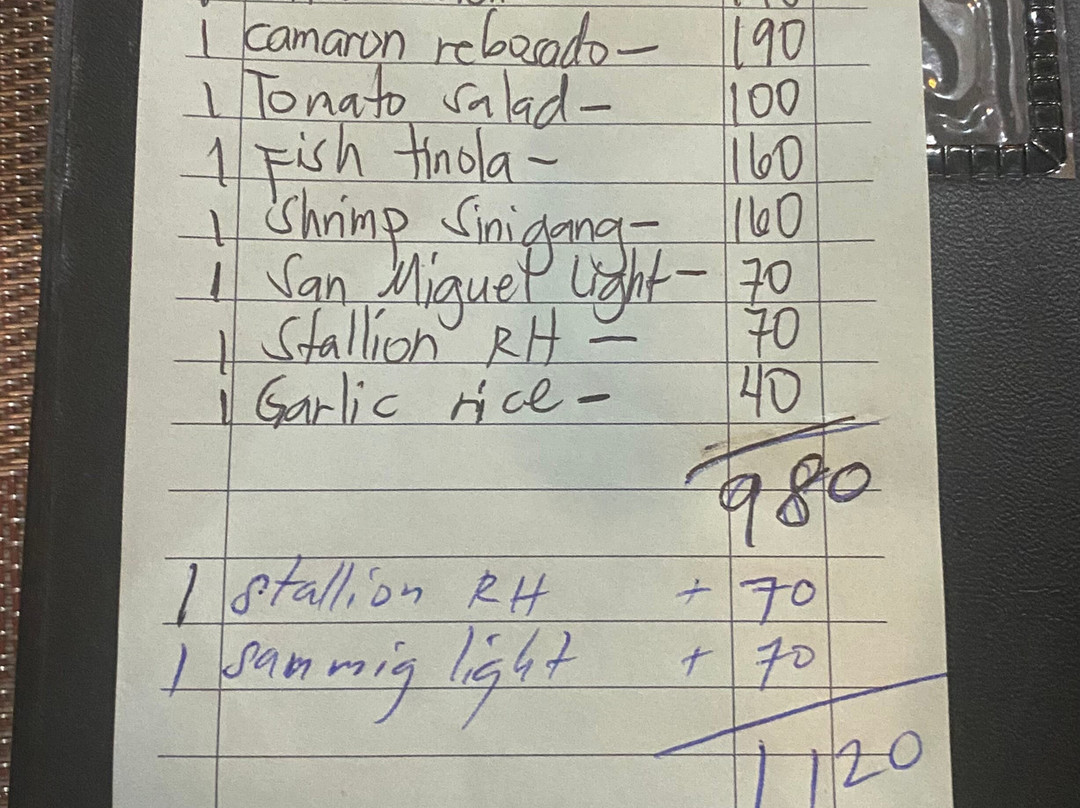 1 camaron rebosado— 190
1 Tomato salad— 100
1 Fish tinola— 160
1 Shrimp Sinigang— 160
1 San Miguel Light— 70
1 Stallion RH — 70
1 Garlic rice— 40
980
1 stallion RH + 70
1 sanmig light + 70
1120